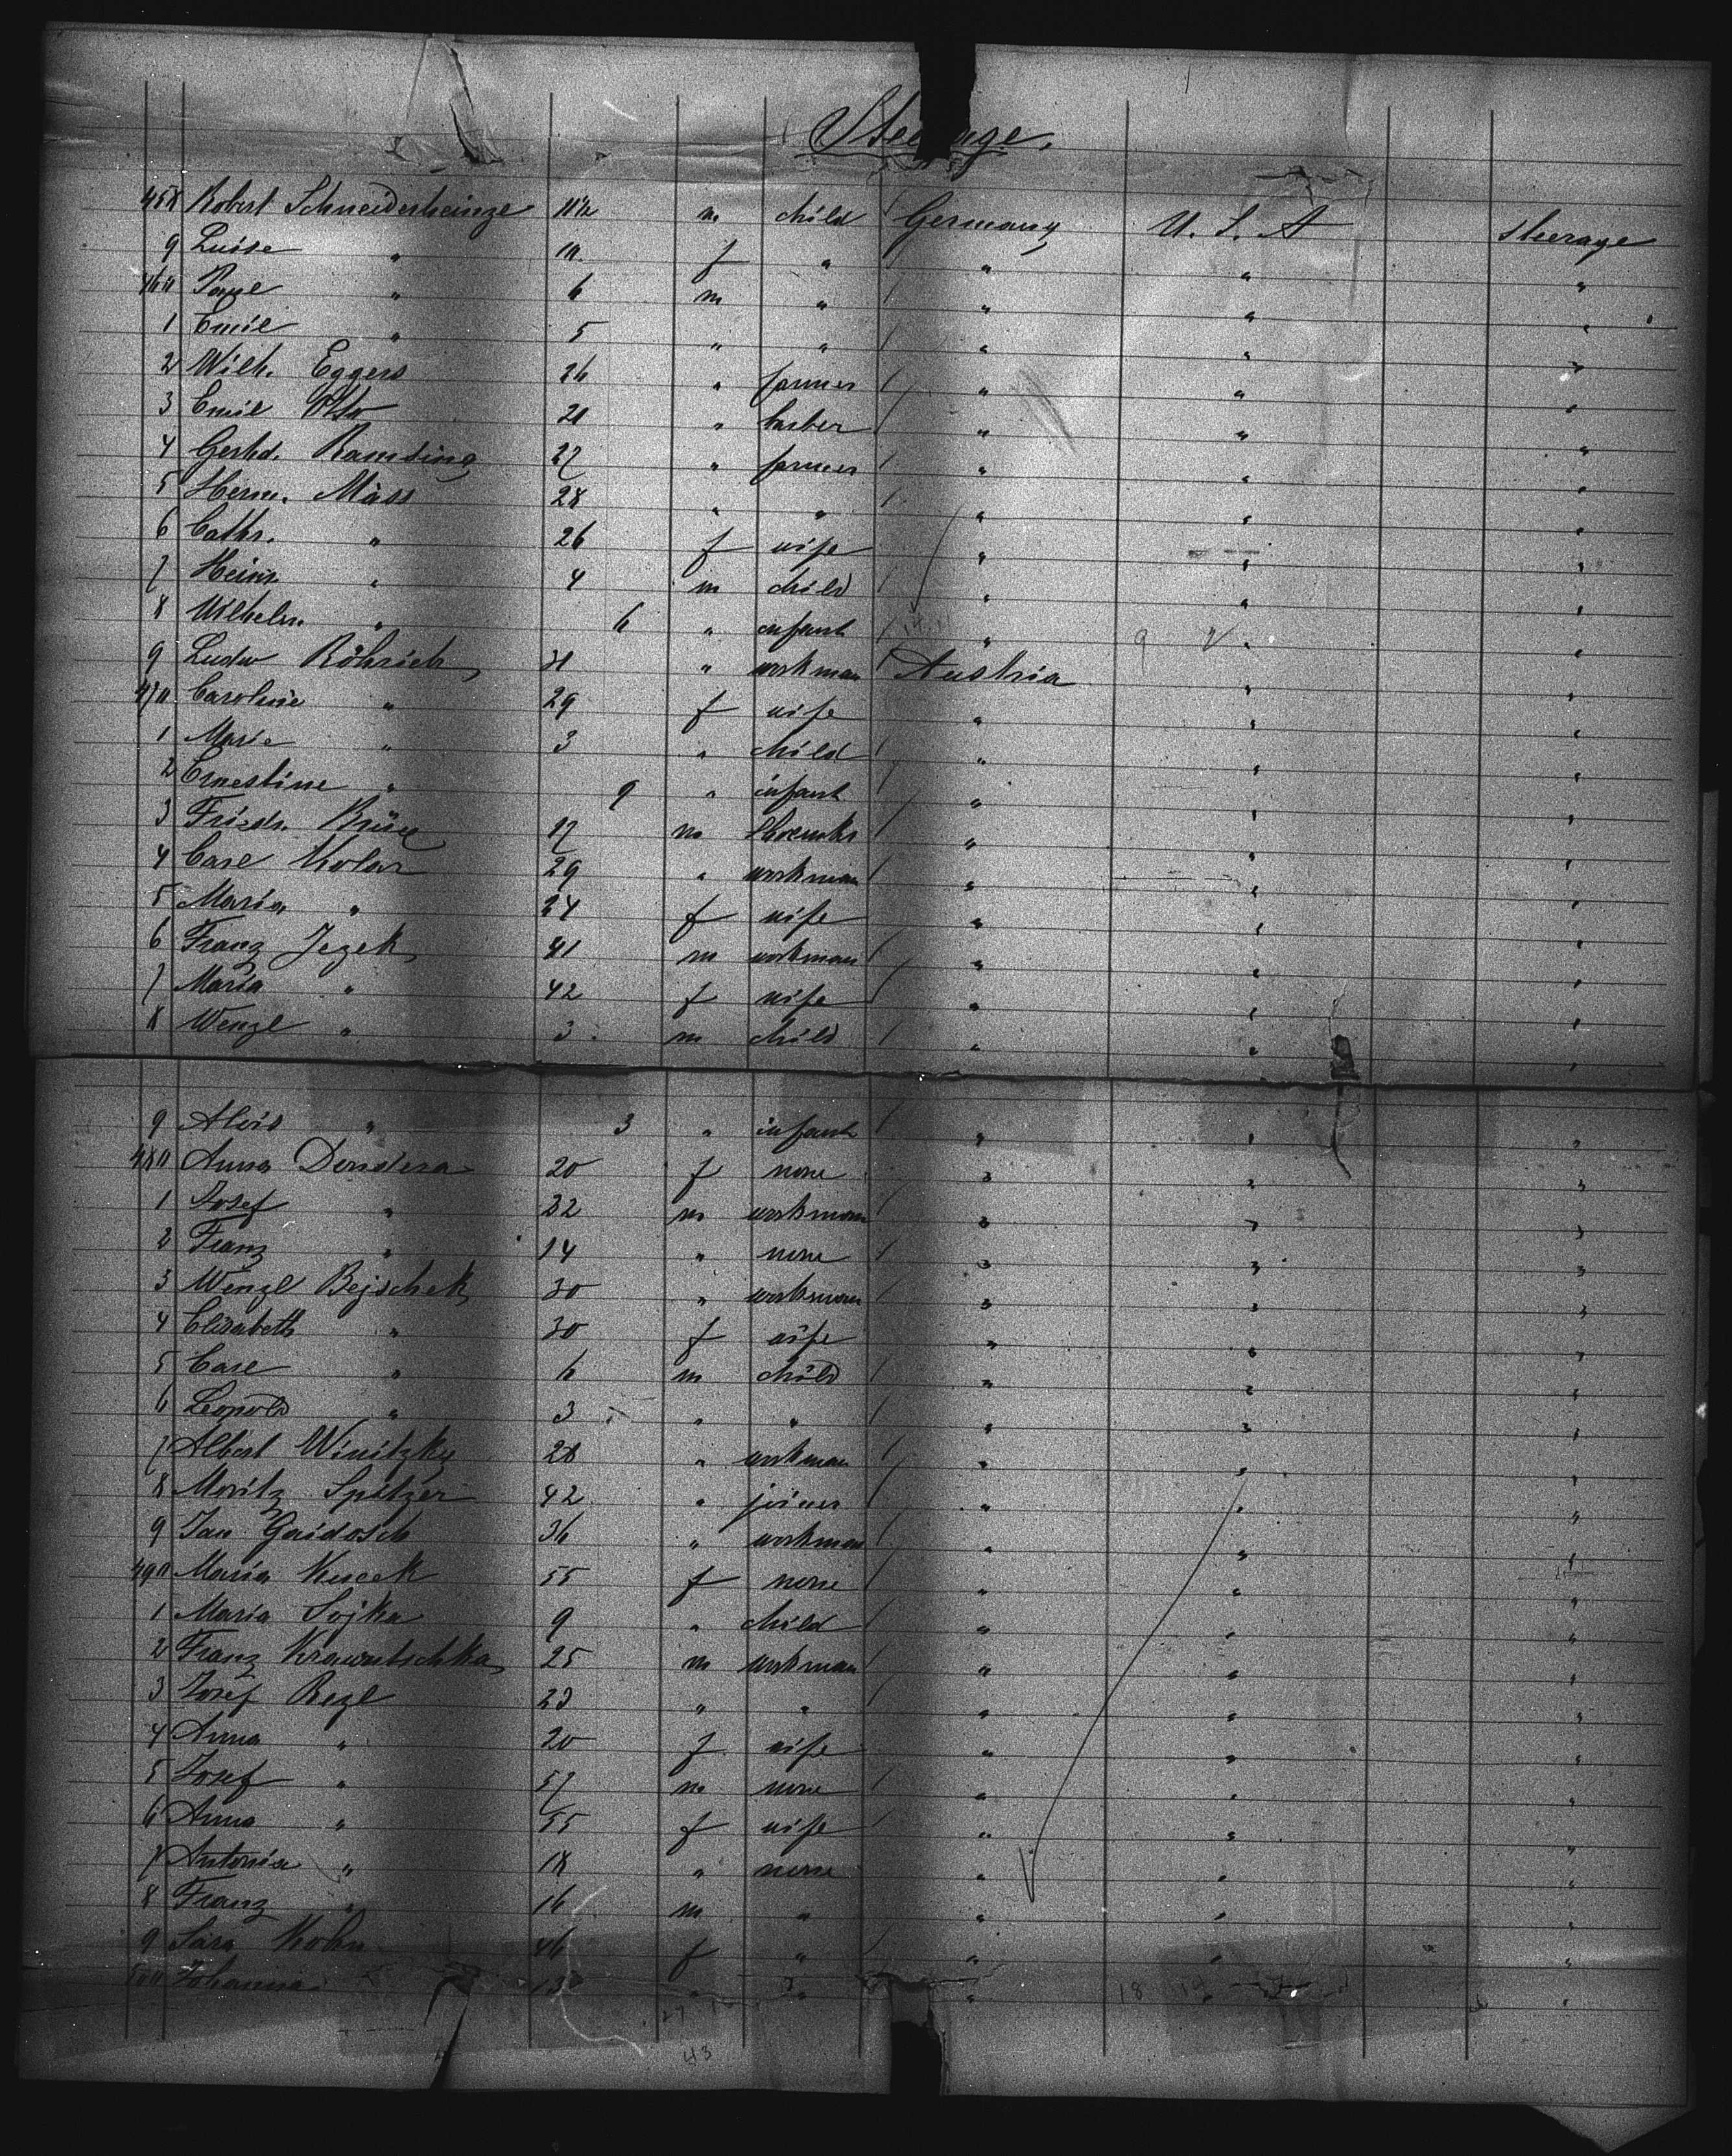 Steerage.
458 Robert Schneiderheinze 11½ m child Germany U. S. A steerage
9 Luise " 10 f " " " "
460 Paul " 6 m " " " "
1 Emil " 5 " " " " "
2 Wilh. Eggers 26 " farmer " " "
3 Emil Otto 21 " barber " " "
4 Gerhd. Ramsding 27 " farmer " " "
5 Herm. Mäss 28 " " " " "
6 Cathr. " 26 f wife " " "
7 Heinr. " 4 m child " " "
8 Wilhelm " 6 " infant " " "
9 Ludw Röhrich 31 " workman Austria " "
470 Caroline " 29 f wife " " "
1 Marie " 3 " child " " "
2 Ernestine " 9 " infant " " "
3 Friedr. 17 m " " "
4 Carl Kolar 29 " workman " " "
5 Maria " 24 f wife " " "
6 Franz Jezek 41 m workman " " "
7 Maria " 42 f wife " " "
8 Wenzl " 3 m child " " "
9 Alois " 3 " infant " " "
480 Anna Dondera 20 f none " " "
1 Josef " 22 m workman " " "
2 Franz " 14 " none " " "
3 Wenzl Bejschek 30 " workman " " "
4 Elisabeth " 30 f wife " " "
5 Carl " 6 m child " " "
6 Leopold " 3 " " " " "
7 Albert Winitzky 28 " workman " " "
8 Moritz Spitzer 42 " joiner " " "
9 Jan Gaidosch 36 " workman " " "
490 Maria 55 f none " " "
1 Maria Sojka 9 " child " " "
2 Franz Krawutschka 25 m workman " " "
3 Josef Rezl 23 " " " " "
4 Anna " 20 f wife " " "
5 Josef " 57 m none " " "
6 Anna " 55 f wife " " "
7 Antonia " 18 " none " " "
8 Franz " 16 m " " " "
9 Sara Kohn 46 f " " " "
500 Johanna 13 " " " " "
43